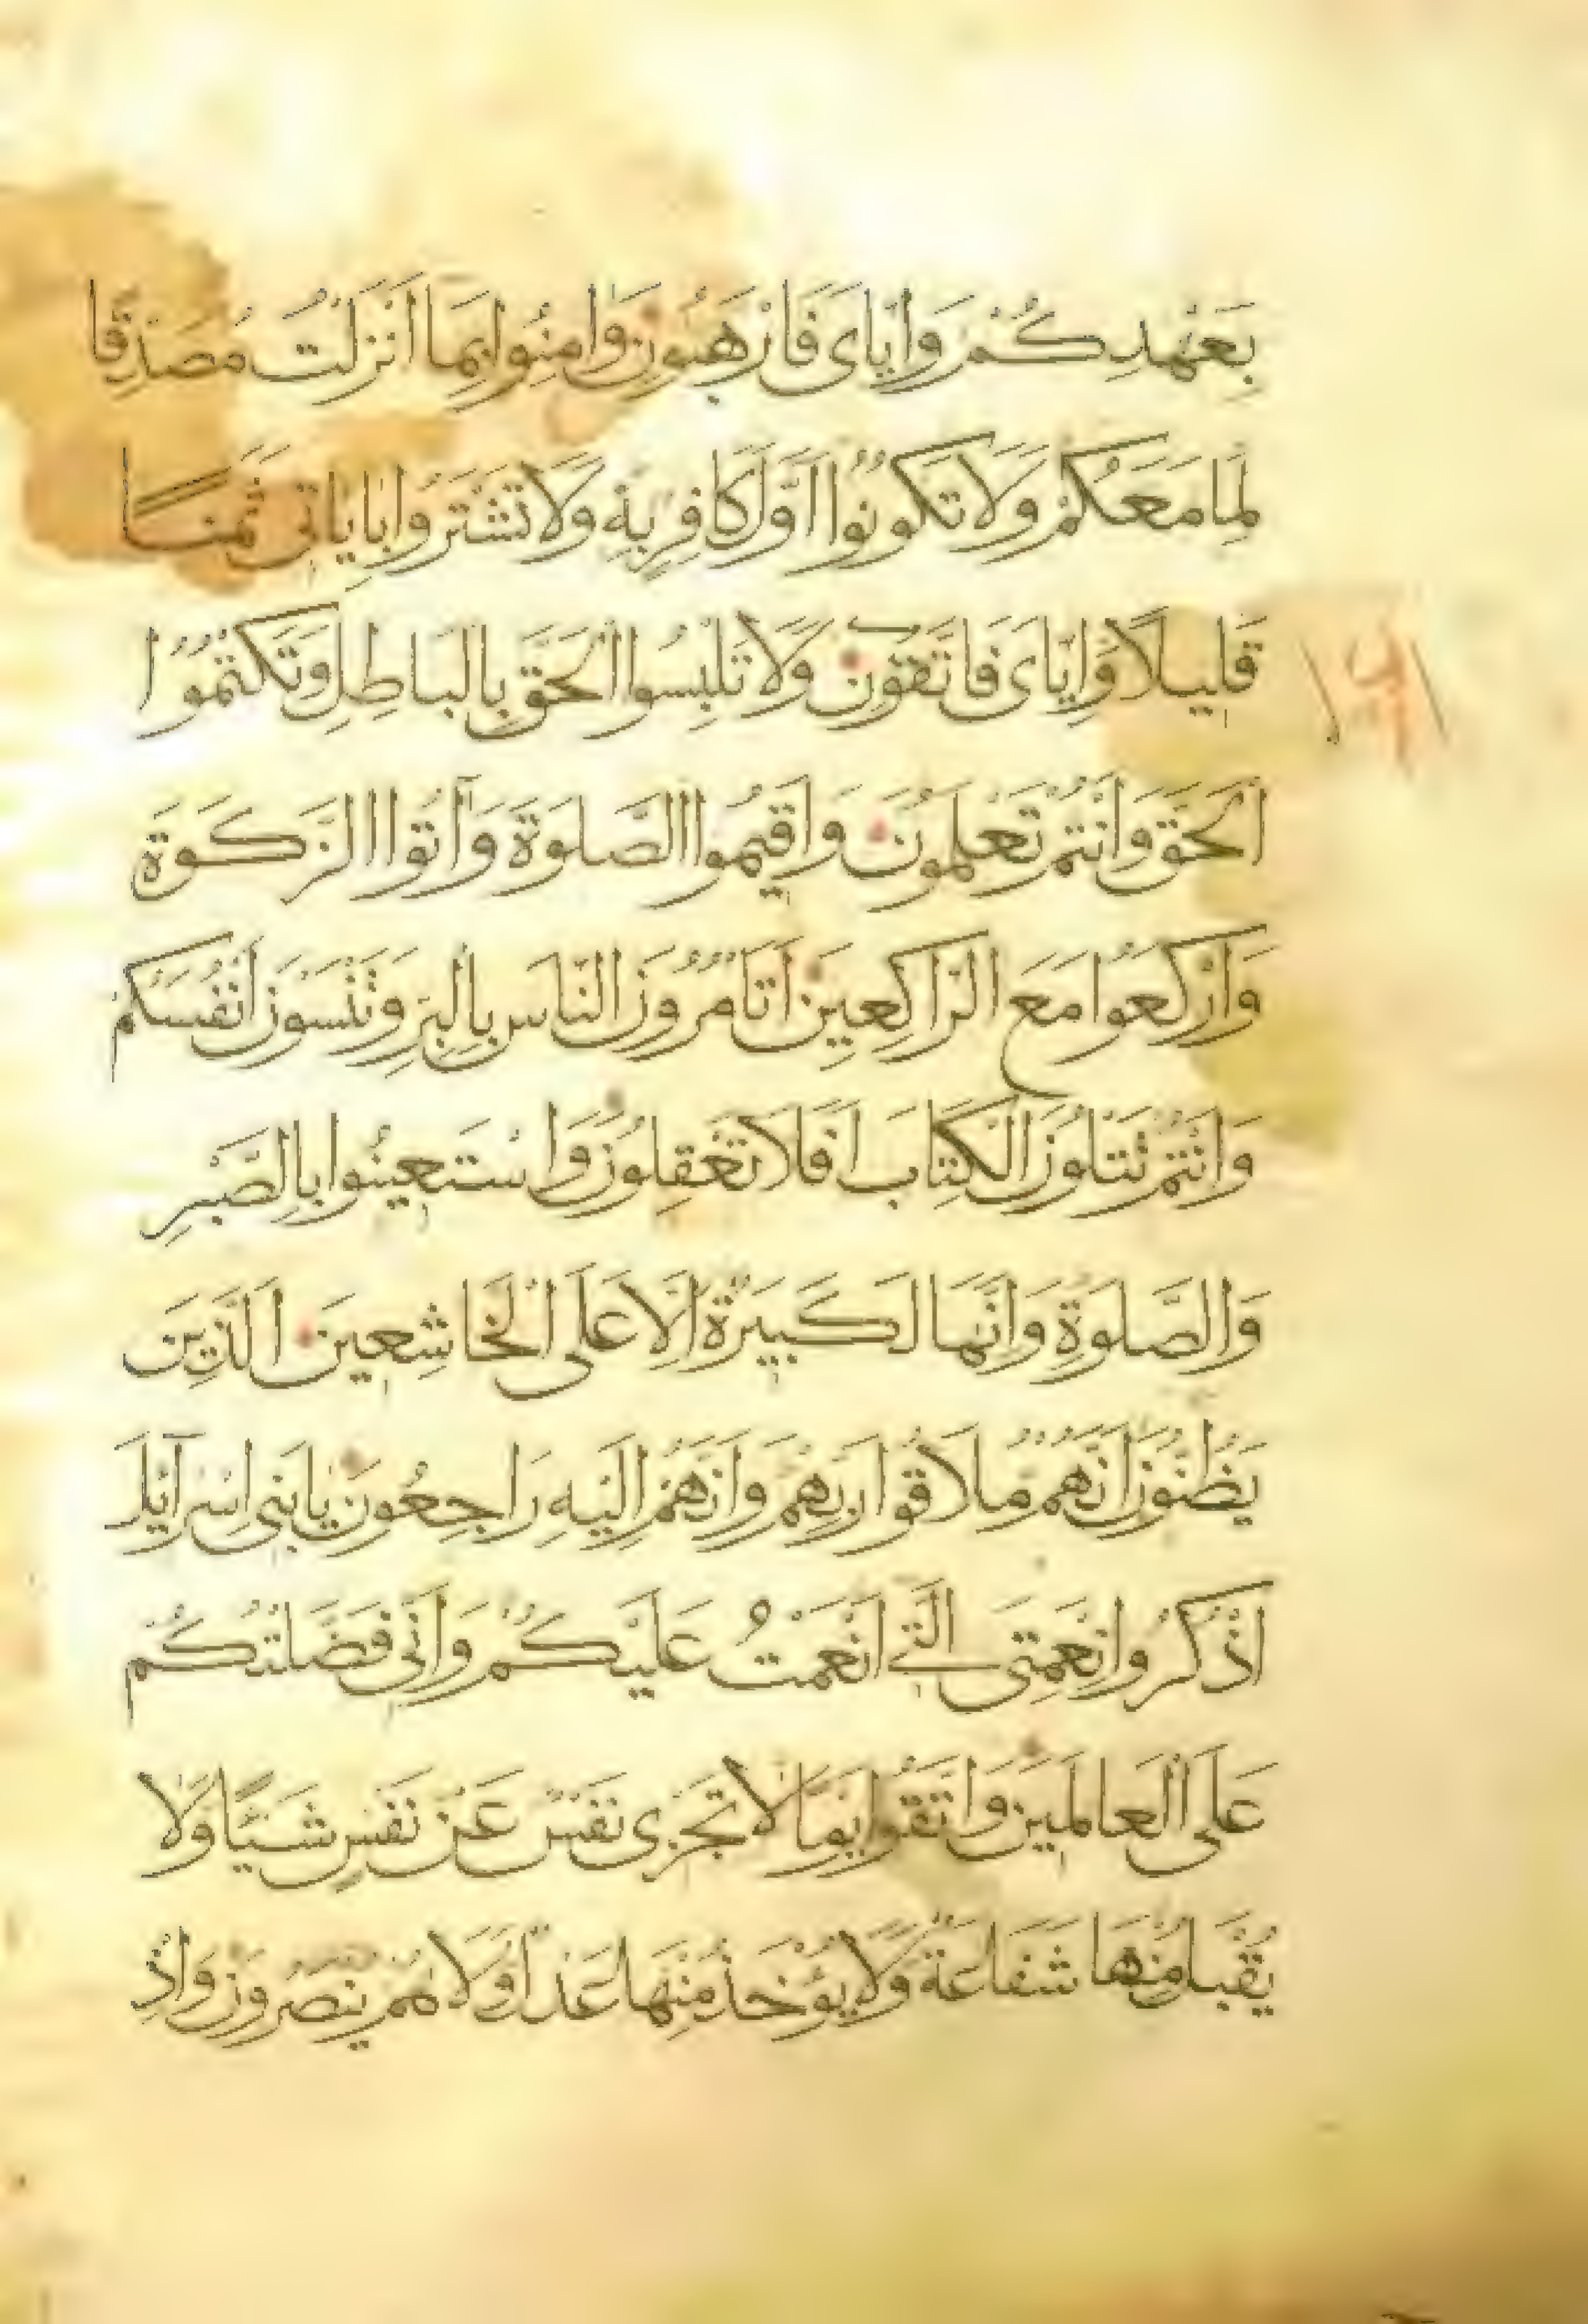 بِعَهْدِكُمْ وَاِيَّاىَ فَارْهَبُونِ وَاٰمِنُوا بِمَا اَنْزَلْتُ مُصَدِّقًا
لِمَا مَعَكُمْ وَلَا تَكُونُوا اَوَّلَ كَافِرٍ بِهٖ وَلَا تَشْتَرُوا بِاٰيَاتِى ثَمَنًا
قَلِيلًا وَاِيَّاىَ فَاتَّقُونِ وَلَا تَلْبِسُوا الْحَقَّ بِالْبَاطِلِ وَتَكْتُمُوا
الْحَقَّ وَاَنْتُمْ تَعْلَمُونَ وَاَقِيمُوا الصَّلٰوةَ وَآتُوا الزَّكٰوةَ
وَارْكَعُوا مَعَ الرَّاكِعِينَ اَتَأْمُرُونَ النَّاسَ بِالْبِرِّ وَتَنْسَوْنَ اَنْفُسَكُمْ
وَاَنْتُمْ تَتْلُونَ الْكِتَابَ اَفَلَا تَعْقِلُونَ وَاسْتَعِينُوا بِالصَّبْرِ
وَالصَّلٰوةِ وَاِنَّهَا لَكَبِيرَةٌ اِلَّا عَلَى الْخَاشِعِينَ الَّذِينَ
يَظُنُّونَ اَنَّهُمْ مُلَاقُوا رَبِّهِمْ وَاَنَّهُمْ اِلَيْهِ رَاجِعُونَ يَابَنِى اِسْرَآئِلَ
اذْكُرُوا نِعْمَتِىَ الَّتِى اَنْعَمْتُ عَلَيْكُمْ وَاَنِّى فَضَّلْتُكُمْ
عَلَى الْعَالَمِينَ وَاتَّقُوا يَوْمًا لَا تَجْزِى نَفْسٌ عَنْ نَفْسٍ شَيْئًا وَلَا
يُقْبَلُ مِنْهَا شَفَاعَةٌ وَلَا يُؤْخَذُ مِنْهَا عَدْلٌ وَلَا هُمْ يُنْصَرُونَ وَاِذْ